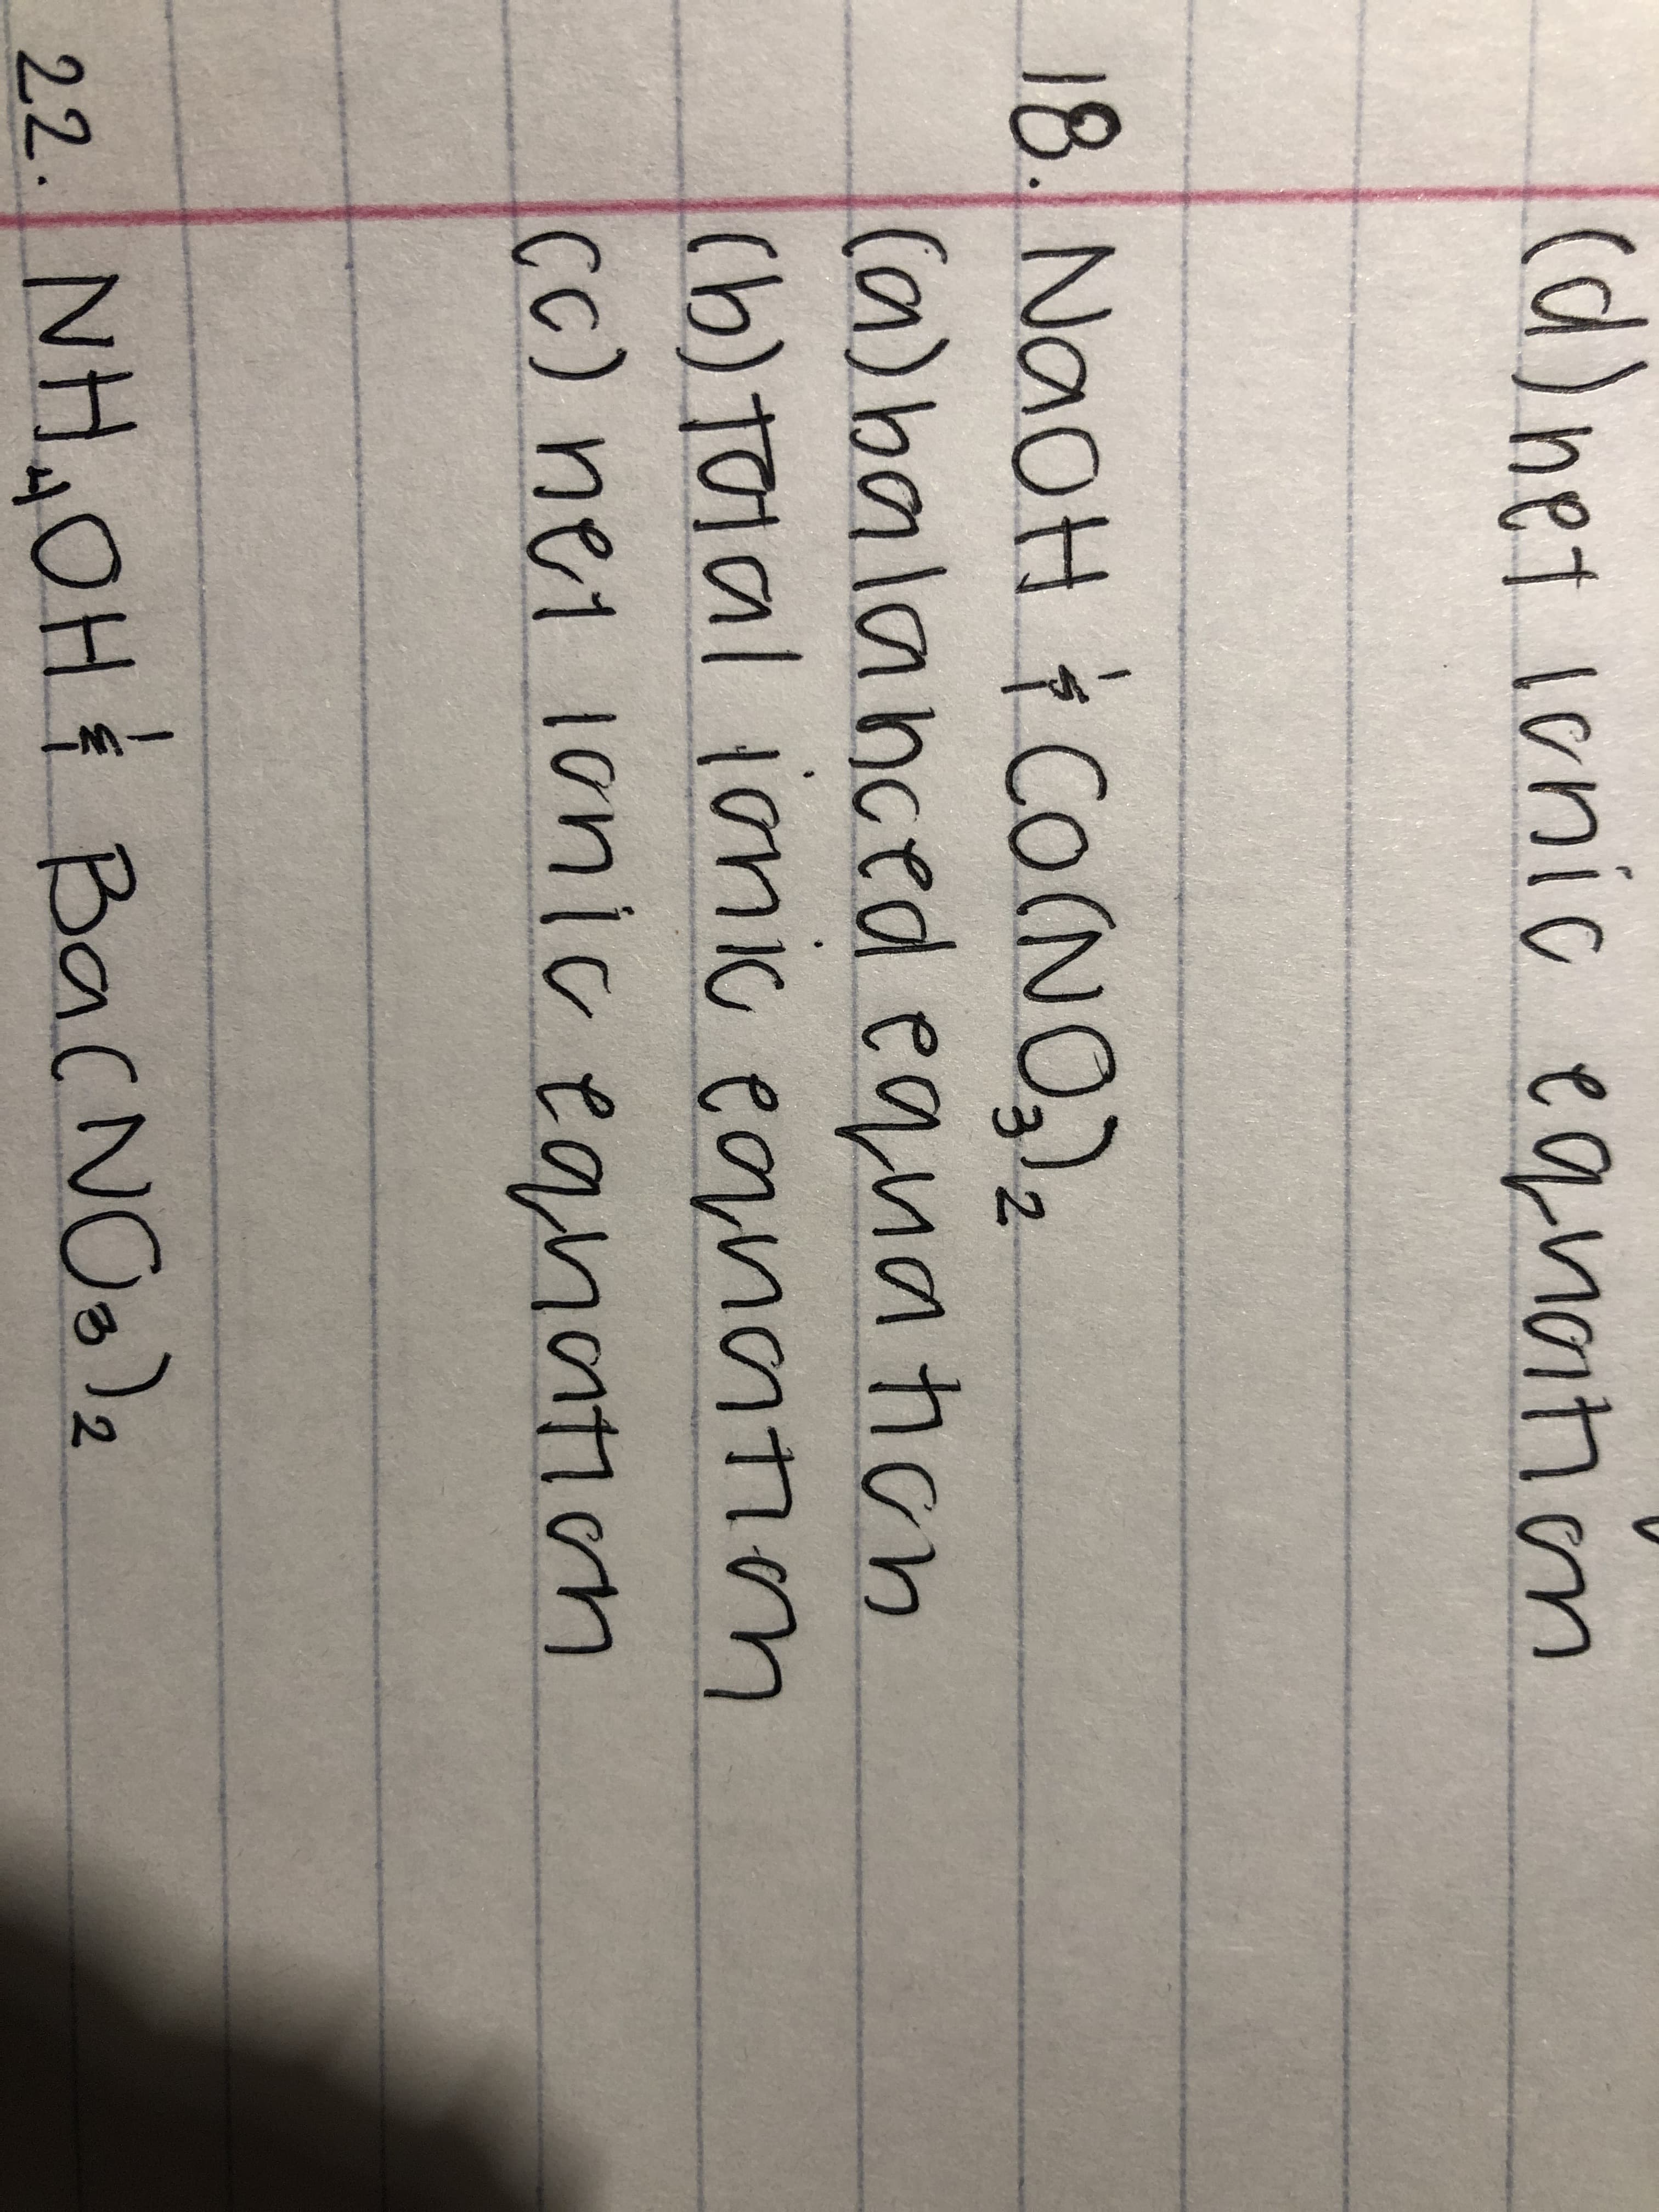 (d) net ionic equation
18. NaOH & Co(NO₃)₂
(a) balanced equation
(b) total ionic equation
(c) net ionic equation
22. NH₄OH & Ba(NO₃)₂